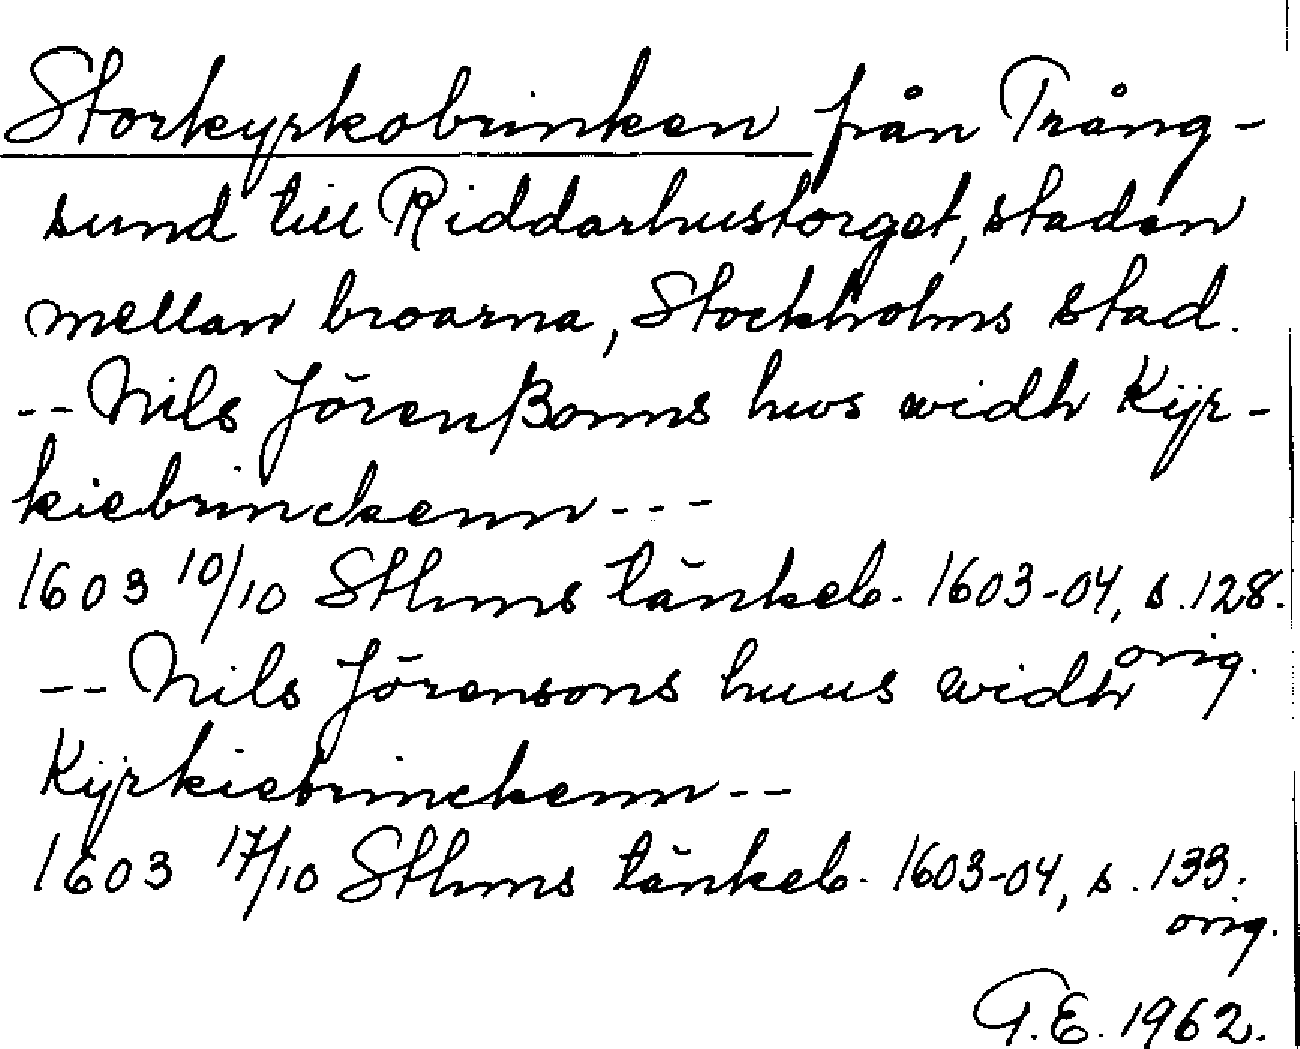 Storkyrkobrinken från Trång-
sund till Riddarhustorget, staden
mellan broarna, Stockholms stad.
-- Nils Jörenßonns hws widh Kijr-
kiebrinckenn ---
1603 10/10 Sthms tänkeb. 1603-04, s. 128.
orig.
-- Nils Jörensons huus widh
Kijrkiebrinckenn --
1603 17/10 Sthms tänkeb. 1603-04, s. 133.
orig.
G.E. 1962.